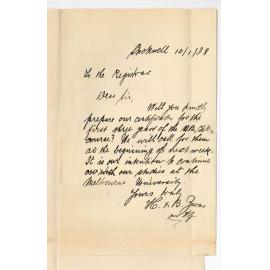 Stockwell 10/1/99
To the Registrar
Dear Sir,
Will you kindly
prepare our certificates for the
first three years of the M.B. Ch.B.
course? We will call for them
at the beginning of next week.
It is our intention to continue
on with our studies at the
Melbourne University.
Yours truly
H. & B.